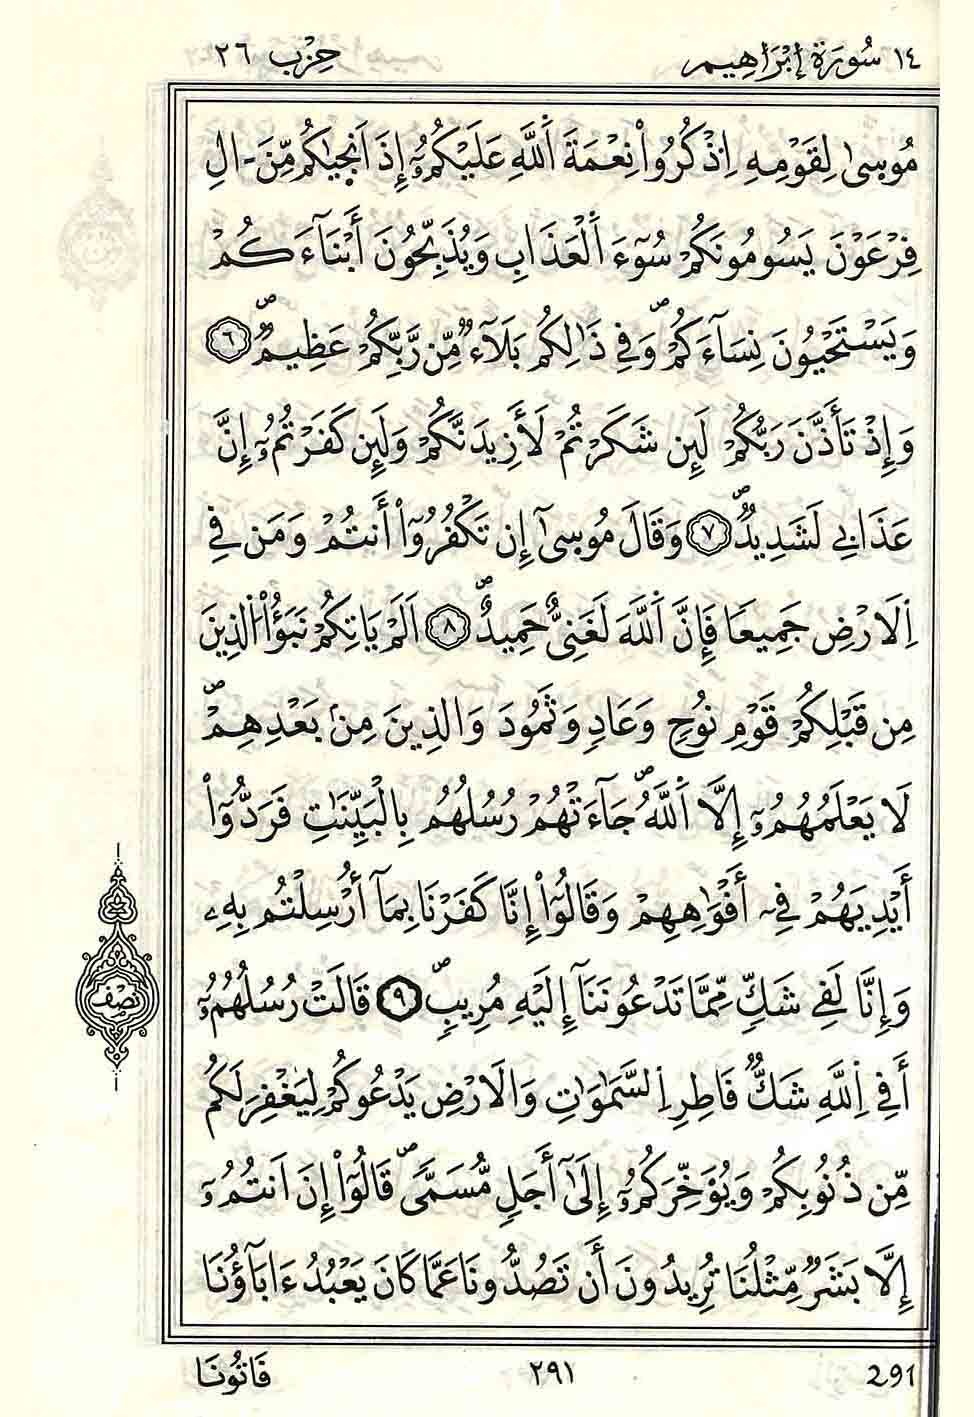 ١٤ سُورَةُ إِبْرَاهِيم حِزْب ٢٦
مُوسىٰ لِقَوْمِهِ اِذْكُرُواْ نِعْمَةَ اَللَّهِ عَلَيْكُمُۥٓ إِذَ اَنجىٰكُم مِّنَ ـ الِ
فِرْعَوْنَ يَسُومُونَكُمْ سُوٓءَ اَلْعَذَابِ وَيُذَبِّحُونَ أَبْنَآءَكُمْ
وَيَسْتَحْيُونَ نِسَآءَكُمْ ۖ وَفِي ذَٰلِكُم بَلَآءٌ مِّن رَّبِّكُمْ عَظِيمٌ ۖ ٦
وَإِذْ تَأَذَّنَ رَبُّكُمْ لَئِن شَكَرْتُمْ لَأَزِيدَنَّكُمْ وَلَئِن كَفَرْتُمُۥٓ إِنَّ
عَذَابِي لَشَدِيدٌ ۖ ٧ وَقَالَ مُوسىٰٓ إِن تَكْفُرُوٓاْ أَنتُمْ وَمَن فِي
اِلَارْضِ جَمِيعًا فَإِنَّ اَللَّهَ لَغَنِيٌّ حَمِيدٌ ۖ ٨ اَلَمْ يَاتِكُمْ نَبَؤُاْ اُلذِينَ
مِن قَبْلِكُمْ قَوْمِ نُوحٍ وَعَادٍ وَثَمُودَ وَالذِينَ مِنۢ بَعْدِهِمْ ۖ
لَا يَعْلَمُهُمُۥٓ إِلَّا اَللَّهُ ۖ جَآءَتْهُمْ رُسُلُهُم بِالْبَيِّنَٰتِ فَرَدُّوٓاْ
أَيْدِيَهُمْ فِےٓ أَفْوَٰهِهِمْ وَقَالُوٓاْ إِنَّا كَفَرْنَا بِمَآ أُرْسِلْتُم بِهِۦ
وَإِنَّا لَفِے شَكٍّ مِّمَّا تَدْعُونَنَآ إِلَيْهِ مُرِيبٍ ۖ ٩ قَالَتْ رُسُلُهُمُۥٓ
أَفِي اِللَّهِ شَكٌّ فَاطِرِ اِلسَّمَٰوَٰتِ وَالَارْضِ يَدْعُوكُمْ لِيَغْفِرَ لَكُم
مِّن ذُنُوبِكُمْ وَيُؤَخِّرَكُمُۥٓ إِلَىٰٓ أَجَلٍ مُّسَمًّى ۖ قَالُوٓاْ إِنَ اَنتُمُۥٓ
إِلَّا بَشَرٌ مِّثْلُنَا تُرِيدُونَ أَن تَصُدُّونَا عَمَّا كَانَ يَعْبُدُ ءَابَآؤُنَا
نِصْف
فَاتُونَا ٢٩١ 291